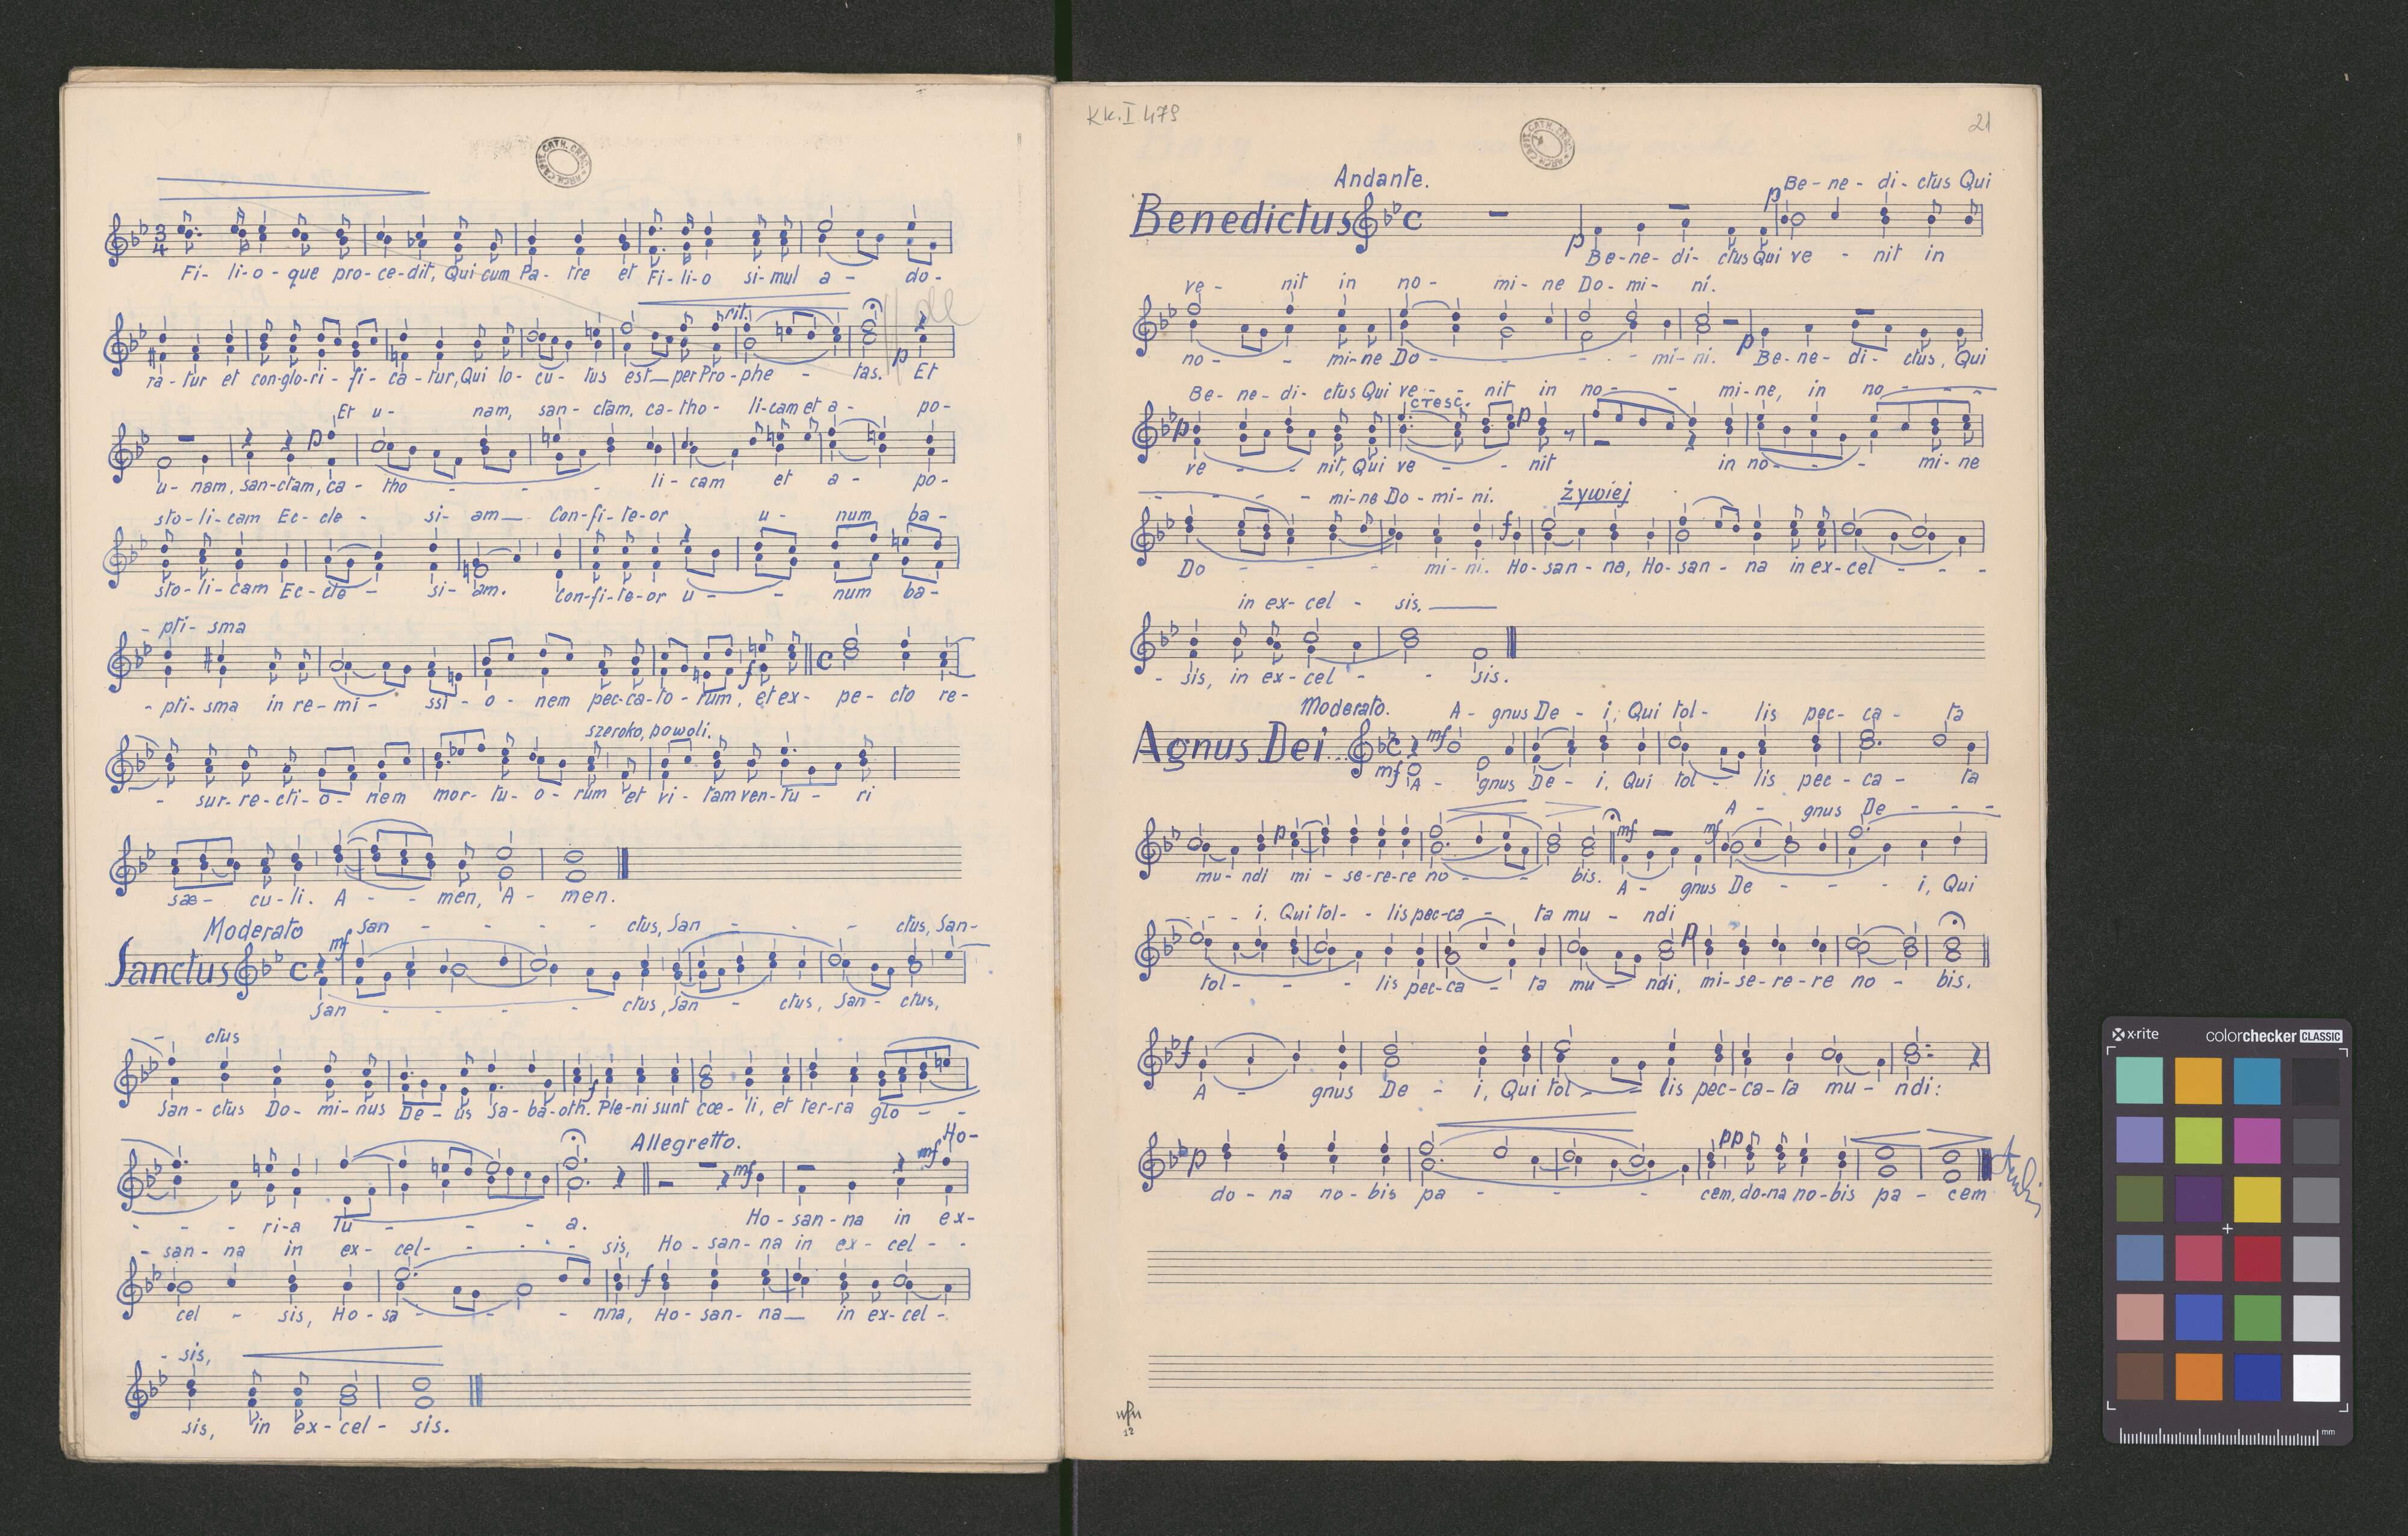 ARCH. CAPIT. CATH. CRAC.
Fi- li-o- que pro-ce-dit, Qui cum Pa- tre et Fi-li-o si-mul a - do-
rit.
p
ra-tur et con-glo-ri-fi-ca-tur, Qui lo-cu-tus est_ per Pro-phe - tas. Et
Et u- nam, san-ctam, ca-tho- li-cam et a- po-
p
u- nam, san-ctam, ca- tho - - - - li-cam et a- po-
sto-li-cam Ec-cle - si- am_ Con-fi-te-or u- num ba-
sto-li-cam Ec-cle - si- am. Con-fi-te-or u - - num ba-
- pti- sma
f
- pti-sma in re-mi - ssi-o-nem pec-ca-to-rum, et ex- pe-cto re-
szeroko, powoli.
- sur-re-cti-o-nem mor-tu-o-rum et vi-tam ven-tu-ri
sæ- cu-li. A - - men, A- men.
Moderato San - - - - - ctus, San - - - - ctus, San-
mf
Sanctus
San - - - - ctus, San - ctus, San- ctus,
ctus
f
San-ctus Do-mi-nus De-us Sa-ba-oth. Ple-ni sunt cœ-li, et ter-ra glo - -
Allegretto. Ho-
mf mf
- - - ri-a Tu - - - - a. Ho-san-na in ex-
- san-na in ex- cel- - - - - sis, Ho-san-na in ex-cel - -
f
cel - sis, Ho-sa - - - nna, Ho-san-na_ in ex-cel-
- sis,
sis, in ex-cel- sis.
KK.I 479
21
ARCH. CAPIT. CATH. CRAC.
Andante. Be-ne-di-ctus Qui
p
Benedictus
p
Be-ne-di-ctus Qui ve - nit in
ve- nit in no- mi-ne Do-mi- ni.
p
no- - mi-ne Do- - - - mi-ni. Be-ne-di-ctus, Qui
Be-ne-di-ctus Qui ve- - nit in no - - mi-ne, in no - - -
p cresc. p
ve - - nit, Qui ve - - nit in no- - - mi-ne
- - - - mi-ne Do-mi-ni. żywiej
f
Do - - - - mi-ni. Ho-san-na, Ho-san-na in ex-cel - - -
in ex-cel - sis.
- sis, in ex-cel - - sis.
Moderato. A- gnus De- i, Qui tol- lis pec-ca- ta
mf
Agnus Dei...
mf
A - gnus De- i, Qui tol - lis pec-ca- ta
A - gnus De - - -
p mf mf
mu-ndi mi-se-re-re no - - bis. A - gnus De - - - i, Qui
- - i. Qui tol- - lis pec-ca - ta mu - ndi
p
tol- - - - lis pec-ca - ta mu - ndi, mi-se-re-re no - bis.
f
A - gnus De - i, Qui tol - lis pec-ca-ta mu-ndi:
p pp
do-na no-bis pa - - - cem, do-na no-bis pa - cem
12
x-rite colorchecker CLASSIC
mm